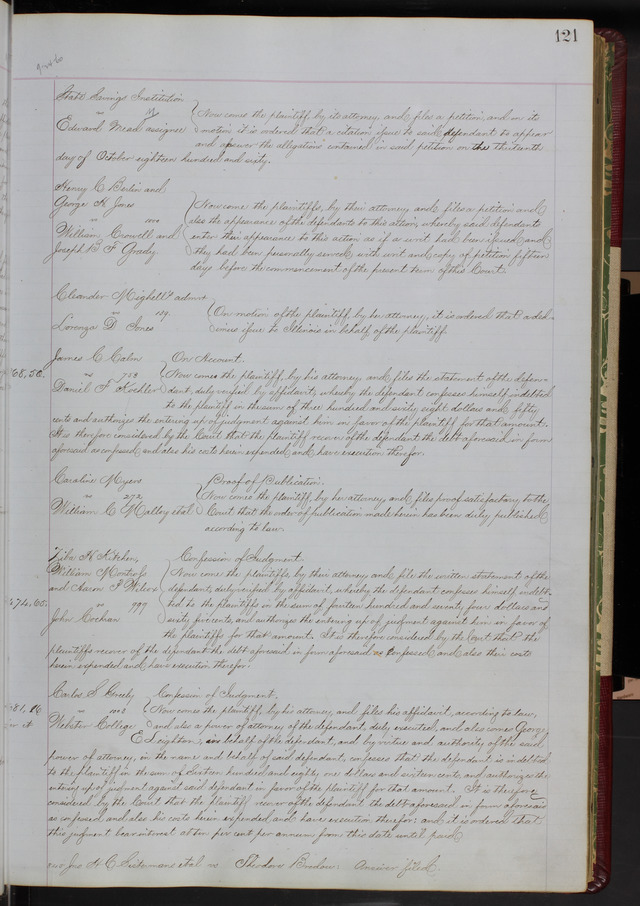 121
State Savings Institution
vs
Edward Mead assignee
Now comes the plaintiff by its attorney and files a petition, and on its
motion it is ordered that a citation issue to said defendant to appear
and answer the allegations contained in said petition on the thirteenth
day of October eighteen hundred and sixty.
Henry C Berlin and
George H Jones
vs
William Crowell and
Joseph B F Grady
Now come the plaintiffs, by their attorney and files a petition and
also the appearance of the defendants to this action, whereby said defendants
enter their appearance to this action as if a writ had been issued and
they had been personally served with writ and copy of petition fifteen
days before the commencement of the present term of this Court.
Cleander Mighell's admr
vs 189
Lorenzo D Jones
On motion of the plaintiff by her attorney, it is ordered that a ded-
imus issue to Illinois in behalf of the plaintiff
James C Colm
vs 753
Daniel F Kochler
On Account.
Now comes the plaintiff, by his attorney and files the statement of the defen-
368,50
dant, duly verified by affidavit, whereby the defendant confesses himself indebted
to the plaintiff in the sum of three hundred and sixty eight dollars and fifty
cents and authorizes the entering up of judgment against him in favor of the plaintiff for that amount.
It is therefore considered by the Court that the plaintiff recover of the defendant the debt aforesaid in form
aforesaid as confessed, and also his costs herein expended, and have execution therefor.
Caroline Myers
vs 272
William C Malley et al
Proof of Publication.
Now comes the plaintiff, by her attorney, and files proof satisfactory to the
Court that the order of publication made herein has been duly published
according to law.
Ziba H Kitchen,
William Montross
and Aaron F Vclers
vs 997
John Cochran
Confession of Judgment.
Now come the plaintiffs, by their attorney and file the written statement of the
defendant, duly verified by affidavit, whereby the defendant confesses himself indebt-
474,65.
ed to the plaintiffs in the sum of fourteen hundred and seventy four dollars and
sixty five cents, and authorizes the entering up of judgment against him in favor of
the plaintiffs for that amount. It is therefore considered by the Court that the
plaintiffs recover of the defendant the debt aforesaid in form aforesaid as confessed and also their costs
herein expended and have execution therefor.
Carlos S Greely
vs 1003
Webster College
Confession of Judgment.
681,16
int
Now comes the plaintiff, by his attorney, and files his affidavit, according to law,
and also a power of attorney of the defendant, duly executed, and also comes George
E Leighton, in behalf of the defendant, and by virtue and authority of the said
power of attorney, in the name and behalf of said defendant, confesses that the defendant is indebted
to the plaintiff in the sum of Sixteen hundred and eighty one dollars and sixteen cents and authorizes the
entering up of judgment against said defendant in favor of the plaintiff for that amount. It is therefore
considered by the Court that the plaintiff recover of the defendant the debt aforesaid in form aforesaid
as confessed, and also his costs herein expended, and have execution therefor: and it is ordered that
this judgment bear interest at ten per cent per annum from this date until paid
Jno H C Suitemans et al vs Theodore Breslow: Answer filed.